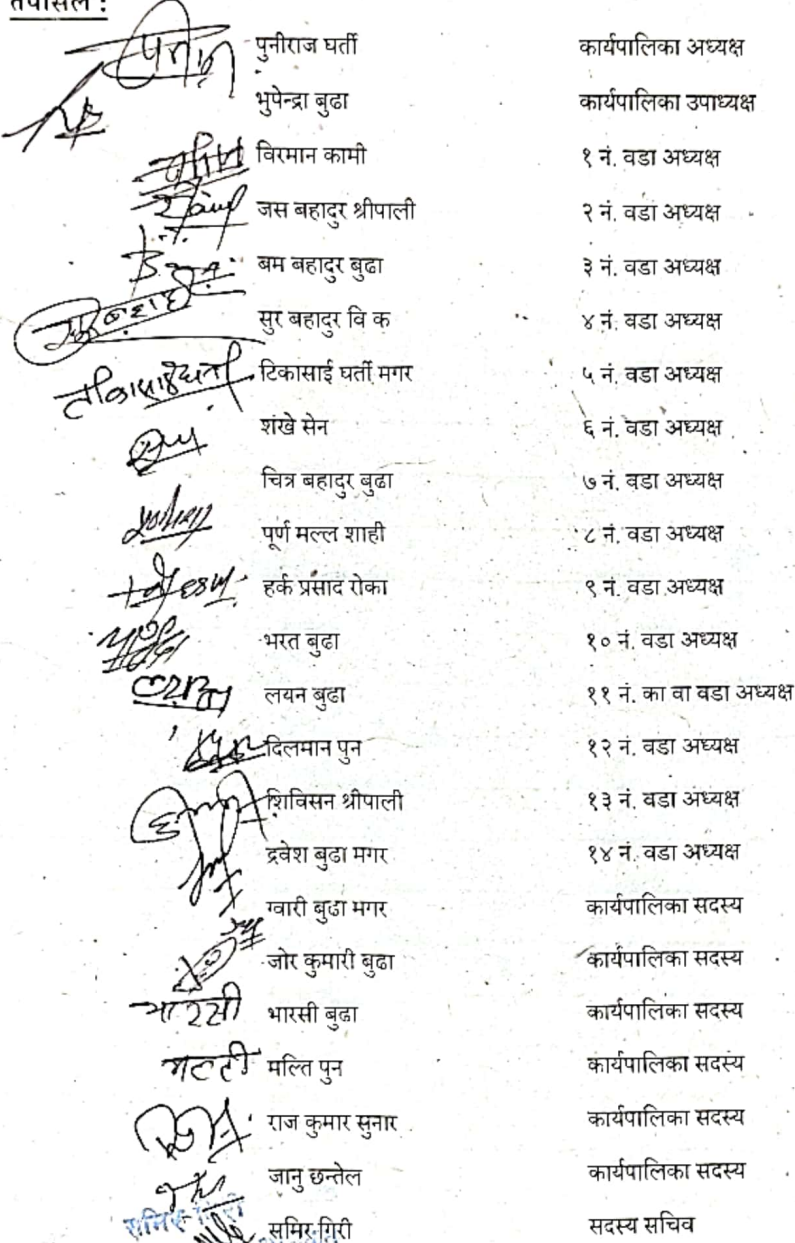 तपसिल :
पुनीराज घर्ती कार्यपालिका अध्यक्ष
भुपेन्द्रा बुढा कार्यपालिका उपाध्यक्ष
विरमान कामी १ नं. वडा अध्यक्ष
जस बहादुर श्रीपाली २ नं. वडा अध्यक्ष
बम बहादुर बुढा ३ नं. वडा अध्यक्ष
सुर बहादुर वि क ४ नं. वडा अध्यक्ष
टिकासाई घर्ती मगर ५ नं. वडा अध्यक्ष
शंखे सेन ६ नं. वडा अध्यक्ष
चित्र बहादुर बुढा ७ नं. वडा अध्यक्ष
पूर्ण मल्ल शाही ८ नं. वडा अध्यक्ष
हर्क प्रसाद रोका ९ नं. वडा अध्यक्ष
भरत बुढा १० नं. वडा अध्यक्ष
लयन बुढा ११ नं. का वा वडा अध्यक्ष
दिलमान पुन १२ नं. वडा अध्यक्ष
शिविसन श्रीपाली १३ नं. वडा अध्यक्ष
द्रवेश बुढा मगर १४ नं. वडा अध्यक्ष
ग्वारी बुढा मगर कार्यपालिका सदस्य
जोर कुमारी बुढा कार्यपालिका सदस्य
भारसी भारसी बुढा कार्यपालिका सदस्य
मल्ती मल्ति पुन कार्यपालिका सदस्य
राज कुमार सुनार कार्यपालिका सदस्य
जानु छन्तेल कार्यपालिका सदस्य
समिर गिरी समिर गिरी सदस्य सचिव